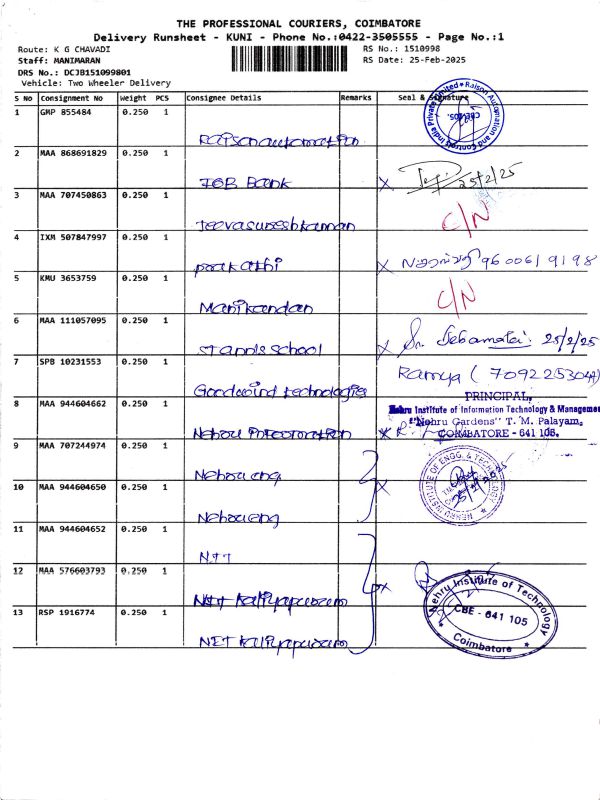 THE PROFESSIONAL COURIERS, COIMBATORE
Delivery Runsheet - KUNI - Phone No.:0422-3505555 - Page No.:1
Route: K G CHAVADI RS No.: 1510998
Staff: MANIMARAN RS Date: 25-Feb-2025
DRS No.: DCJB151099801
Vehicle: Two Wheeler Delivery
S No Consignment No Weight PCS Consignee Details Remarks Seal & Signature
1 GMP 855484 0.250 1
Raison automation
Raison Automation and Controls India Private Limited
2 MAA 868691829 0.250 1
IOB Bank x 25/2/25
3 MAA 707450863 0.250 1
Jeevasureshkannan C/N
4 IXM 507847997 0.250 1
prakathi x 9600619198
5 KMU 3653759 0.250 1
Manikandan C/N
6 MAA 111057095 0.250 1
st annis school x Sr. Sebamalai 25/2/25
7 SPB 10231553 0.250 1
Goodwind technologies Ramya (
8 MAA 944604662 0.250 1
PRINCIPAL,
Nehru Institute of Information Technology & Management
"Nehru Gardens" T. M. Palayam,
COIMBATORE - 641 105.
Nehru Information x
9 MAA 707244974 0.250 1
Nehru eng
NEHRU INSTITUTE OF ENGG. & TECHNOLOGY
10 MAA 944604650 0.250 1 x
Nehru eng
11 MAA 944604652 0.250 1
NIT
12 MAA 576603793 0.250 1 x
NIT Kaliyapuram
13 RSP 1916774 0.250 1
NIT Kaliyapuram
Nehru Institute of Technology
CBE - 641 105
Coimbatore